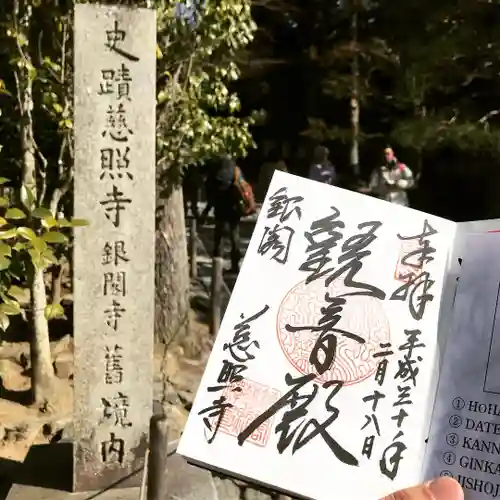 史蹟慈照寺銀閣寺舊境内
奉拝
平成三十年
二月十八日
觀音殿
銀閣
慈照寺
①
② DATE
③ KANN
④ GINKA
⑤ JISHO